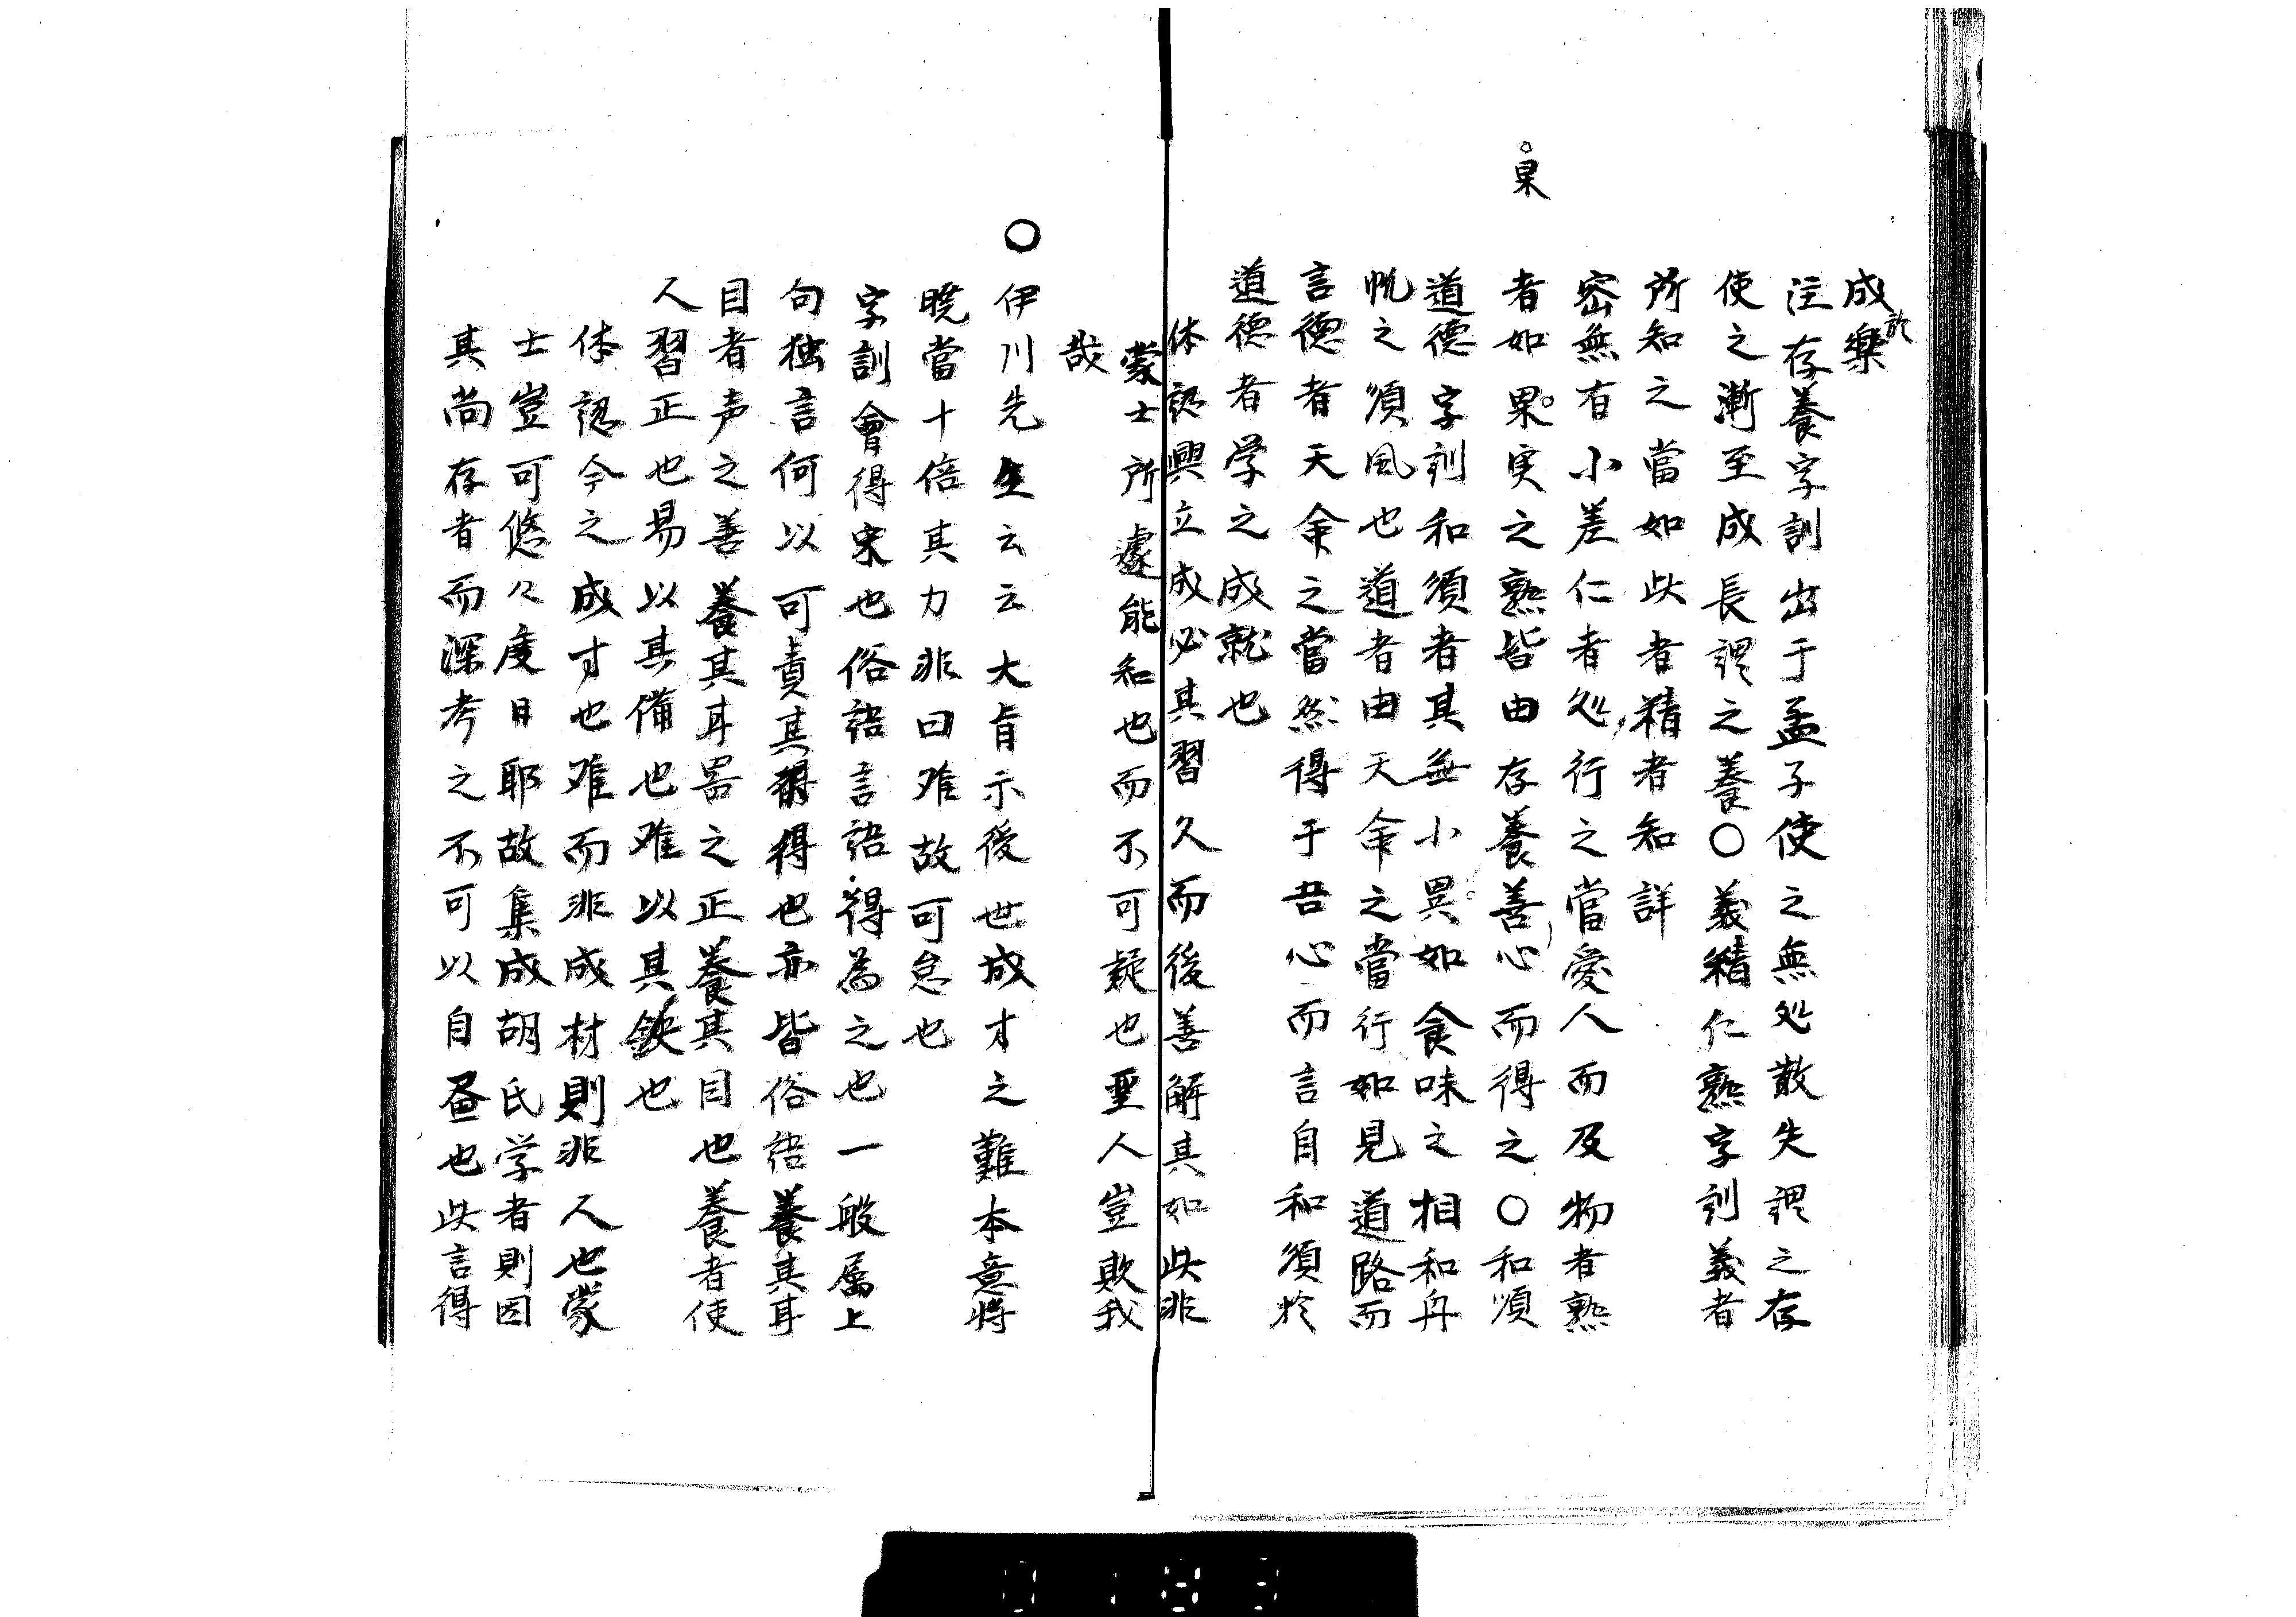 成於樂
注存養字訓出于孟子使之無処散失謂之存
使之漸至成長謂之養○義精仁熟字訓義者
所知之當如此者精者知詳
密無有小差仁者処行之當愛人而及物者熟
果
者如果実之熟皆由存養善心而得之○和順
道德字訓和須者其無小異如食味之相和舟
帆之須風也道者由天命之當行如見道路而
言德者天命之當然得于吾心而言自和須於
道德者学之成就也
体認興立成必其習久而後善解其如此非
蒙士所遽能知也而不可疑也聖人豈欺我
哉
○伊川先生云云大旨示後世成才之難本意将
暁當十倍其力非曰难故可怠也
字訓會得宋也俗語言語得為之也一般属上
句独言何以可責其得也亦皆俗語養其耳
目者声之善養其耳器之正養其目也養者使
人習正也易以其備也难以其缺也
体認今之成才也难而非成材則非人也蒙
士豈可悠々度日耶故集成胡氏学者則因
其尚存者而深考之不可以自画也此言得